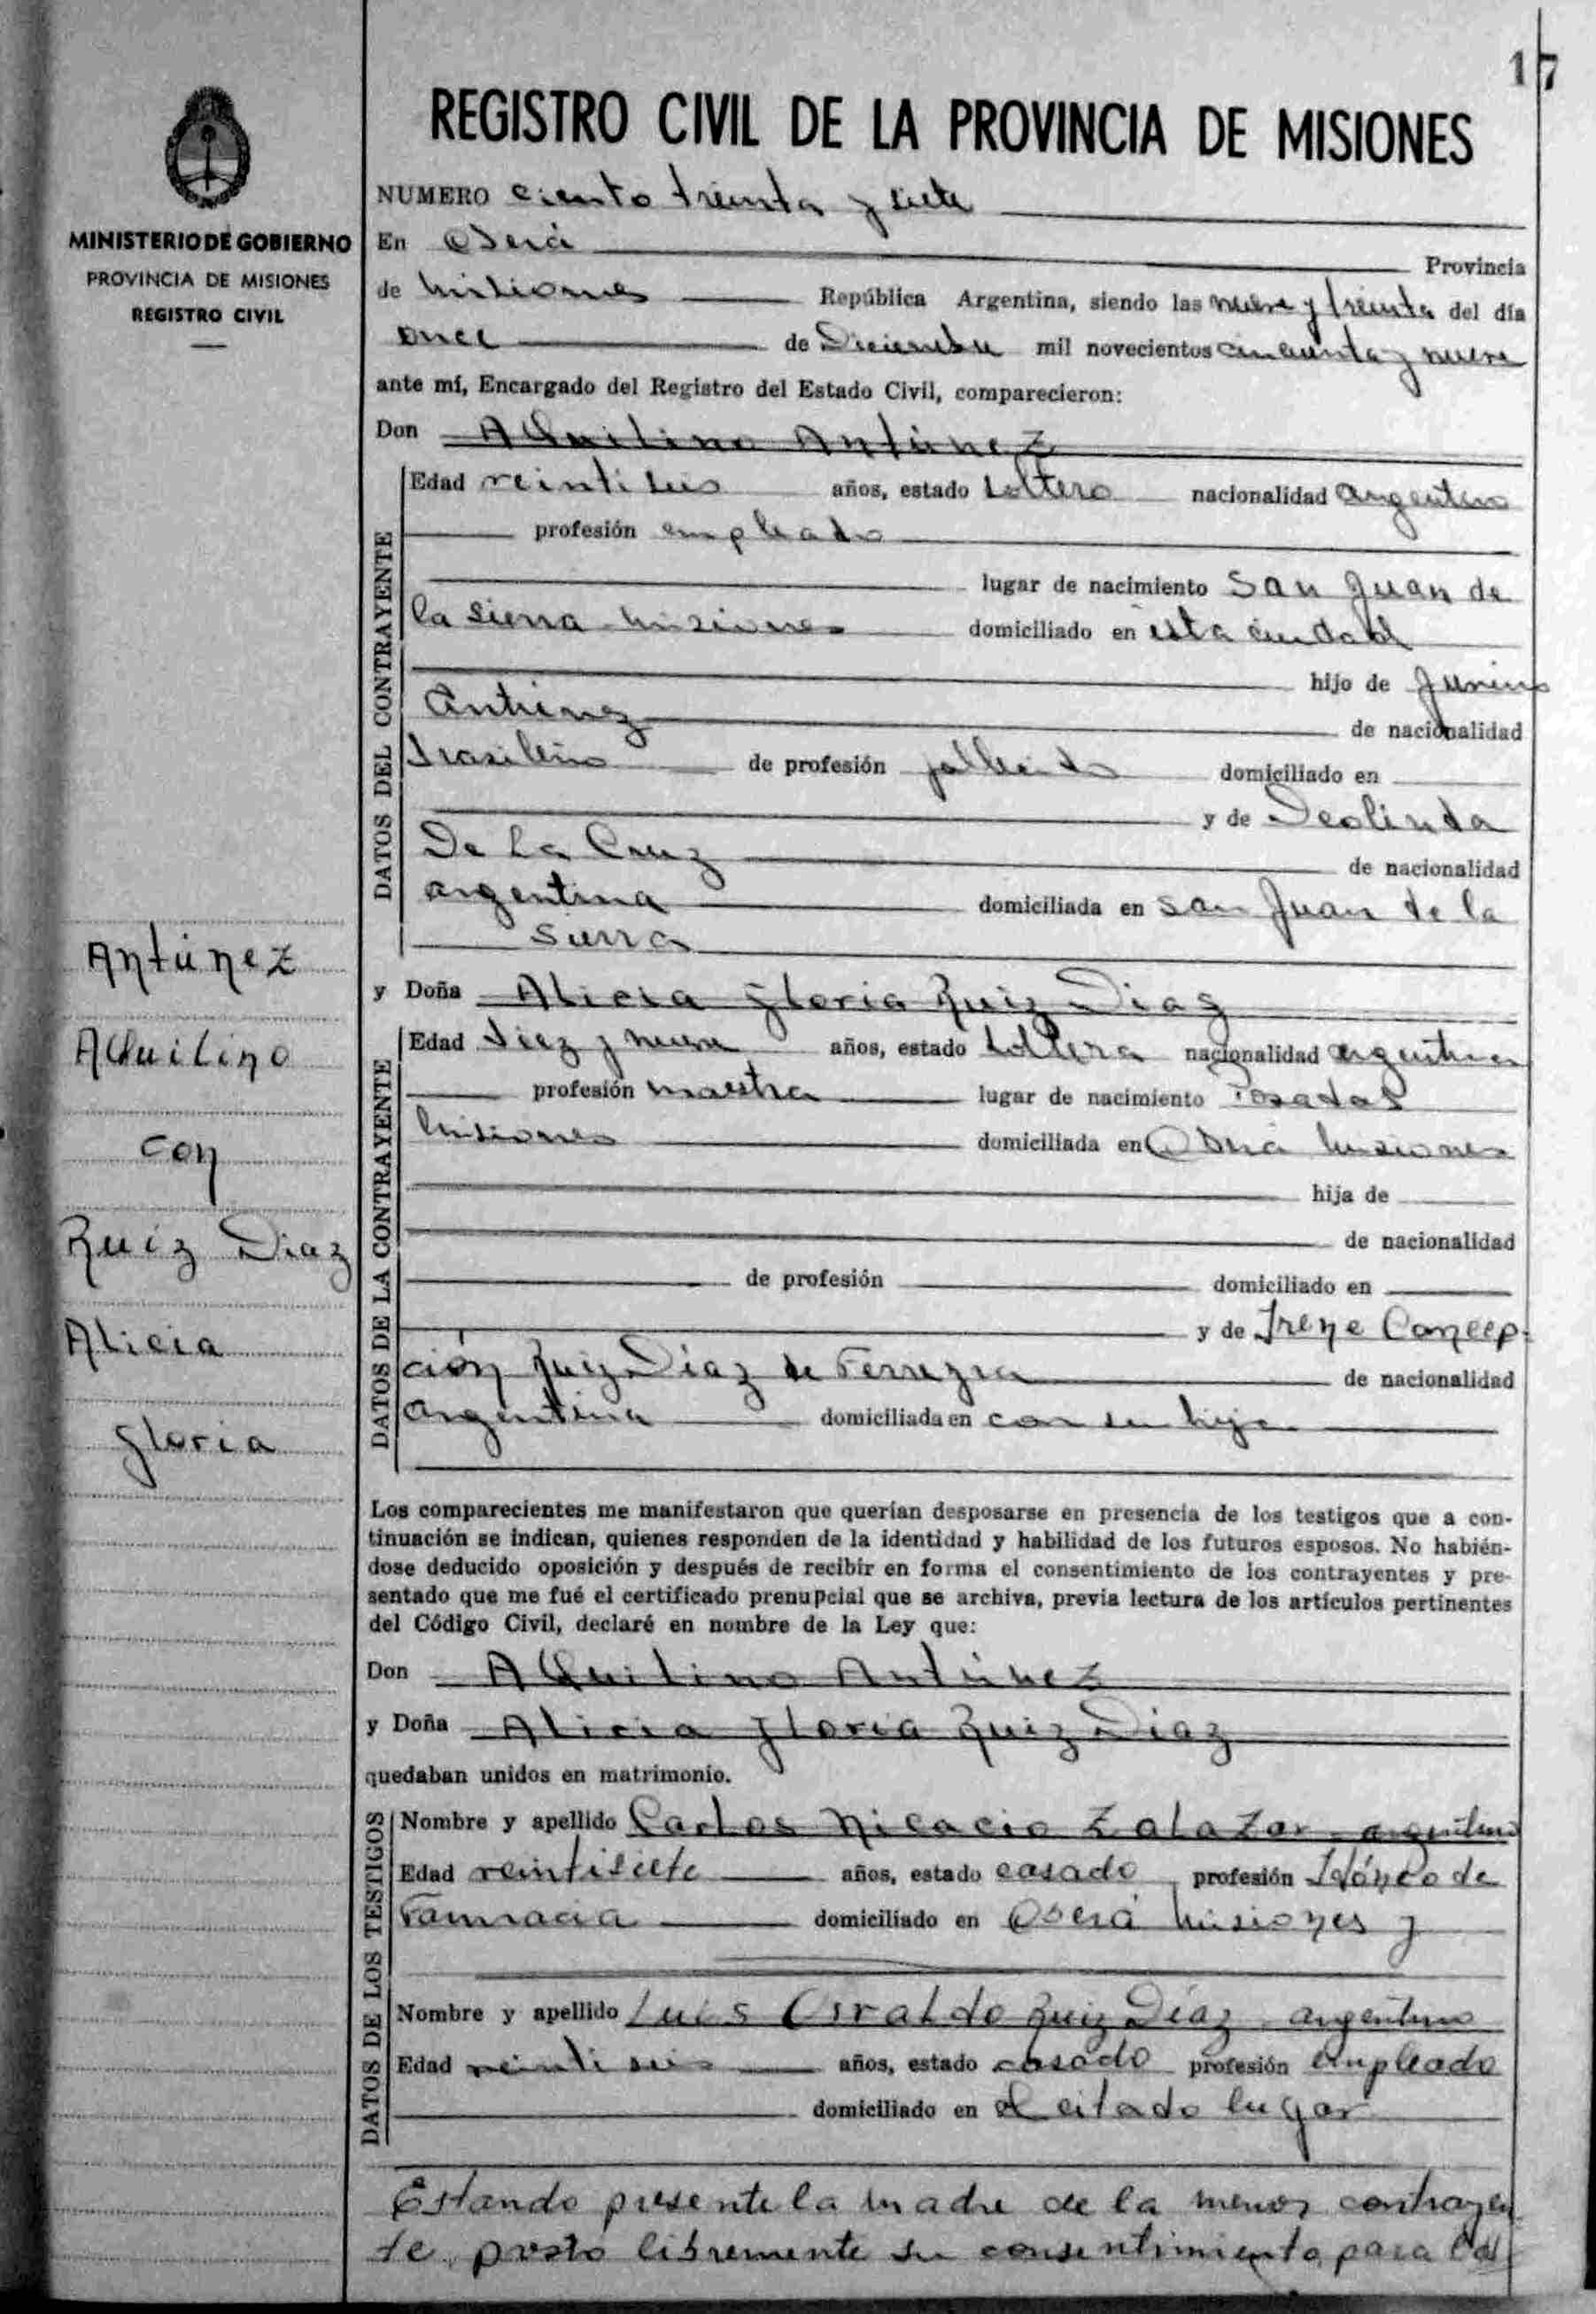 17
REGISTRO CIVIL DE LA PROVINCIA DE MISIONES
MINISTERIO DE GOBIERNO
PROVINCIA DE MISIONES
REGISTRO CIVIL
NUMERO ciento treinta y siete
En Oberá Provincia
de Misiones República Argentina, siendo las nueve y treinta del día
once de Diciembre mil novecientos cincuenta y nueve
ante mí, Encargado del Registro del Estado Civil, comparecieron:
Don AQuilino Antúnez
DATOS DEL CONTRAYENTE
Edad veintiseis años, estado soltero nacionalidad argentino
profesión empleado
lugar de nacimiento San Juan de
la Sierra Misiones domiciliado en esta ciudad
hijo de
Antúnez de nacionalidad
brasileño de profesión domiciliado en
y de Deolinda
De La Cruz de nacionalidad
argentina domiciliada en San Juan de la
Sierra
y Doña Alicia Gloria Ruiz Diaz
DATOS DE LA CONTRAYENTE
Edad diez y nueve años, estado soltera nacionalidad argentina
profesión maestra lugar de nacimiento Posadas
Misiones domiciliada en Oberá Misiones
hija de
de nacionalidad
de profesión domiciliado en
y de Irene Concep-
ción Ruiz Díaz de Ferreyra de nacionalidad
Argentina domiciliada en con su hija
Los comparecientes me manifestaron que querían desposarse en presencia de los testigos que a con-
tinuación se indican, quienes responden de la identidad y habilidad de los futuros esposos. No habién-
dose deducido oposición y después de recibir en forma el consentimiento de los contrayentes y pre-
sentado que me fué el certificado prenupcial que se archiva, previa lectura de los artículos pertinentes
del Código Civil, declaré en nombre de la Ley que:
Don AQuilino Antúnez
y Doña Alicia Gloria Ruiz Diaz
quedaban unidos en matrimonio.
DATOS DE LOS TESTIGOS
Nombre y apellido Carlos Nicacio Zalazar argentino
Edad veintisiete años, estado casado profesión Idóneo de
Farmacia domiciliado en Oberá Misiones y
Nombre y apellido Luis Osvaldo Ruiz Díaz argentino
Edad veintiseis años, estado casado profesión empleado
domiciliado en el citado lugar
Estando presente la madre de la menor contrayen
te, prestó libremente su consentimiento para
Antúnez
AQuilino
con
Ruiz Diaz
Alicia
Gloria